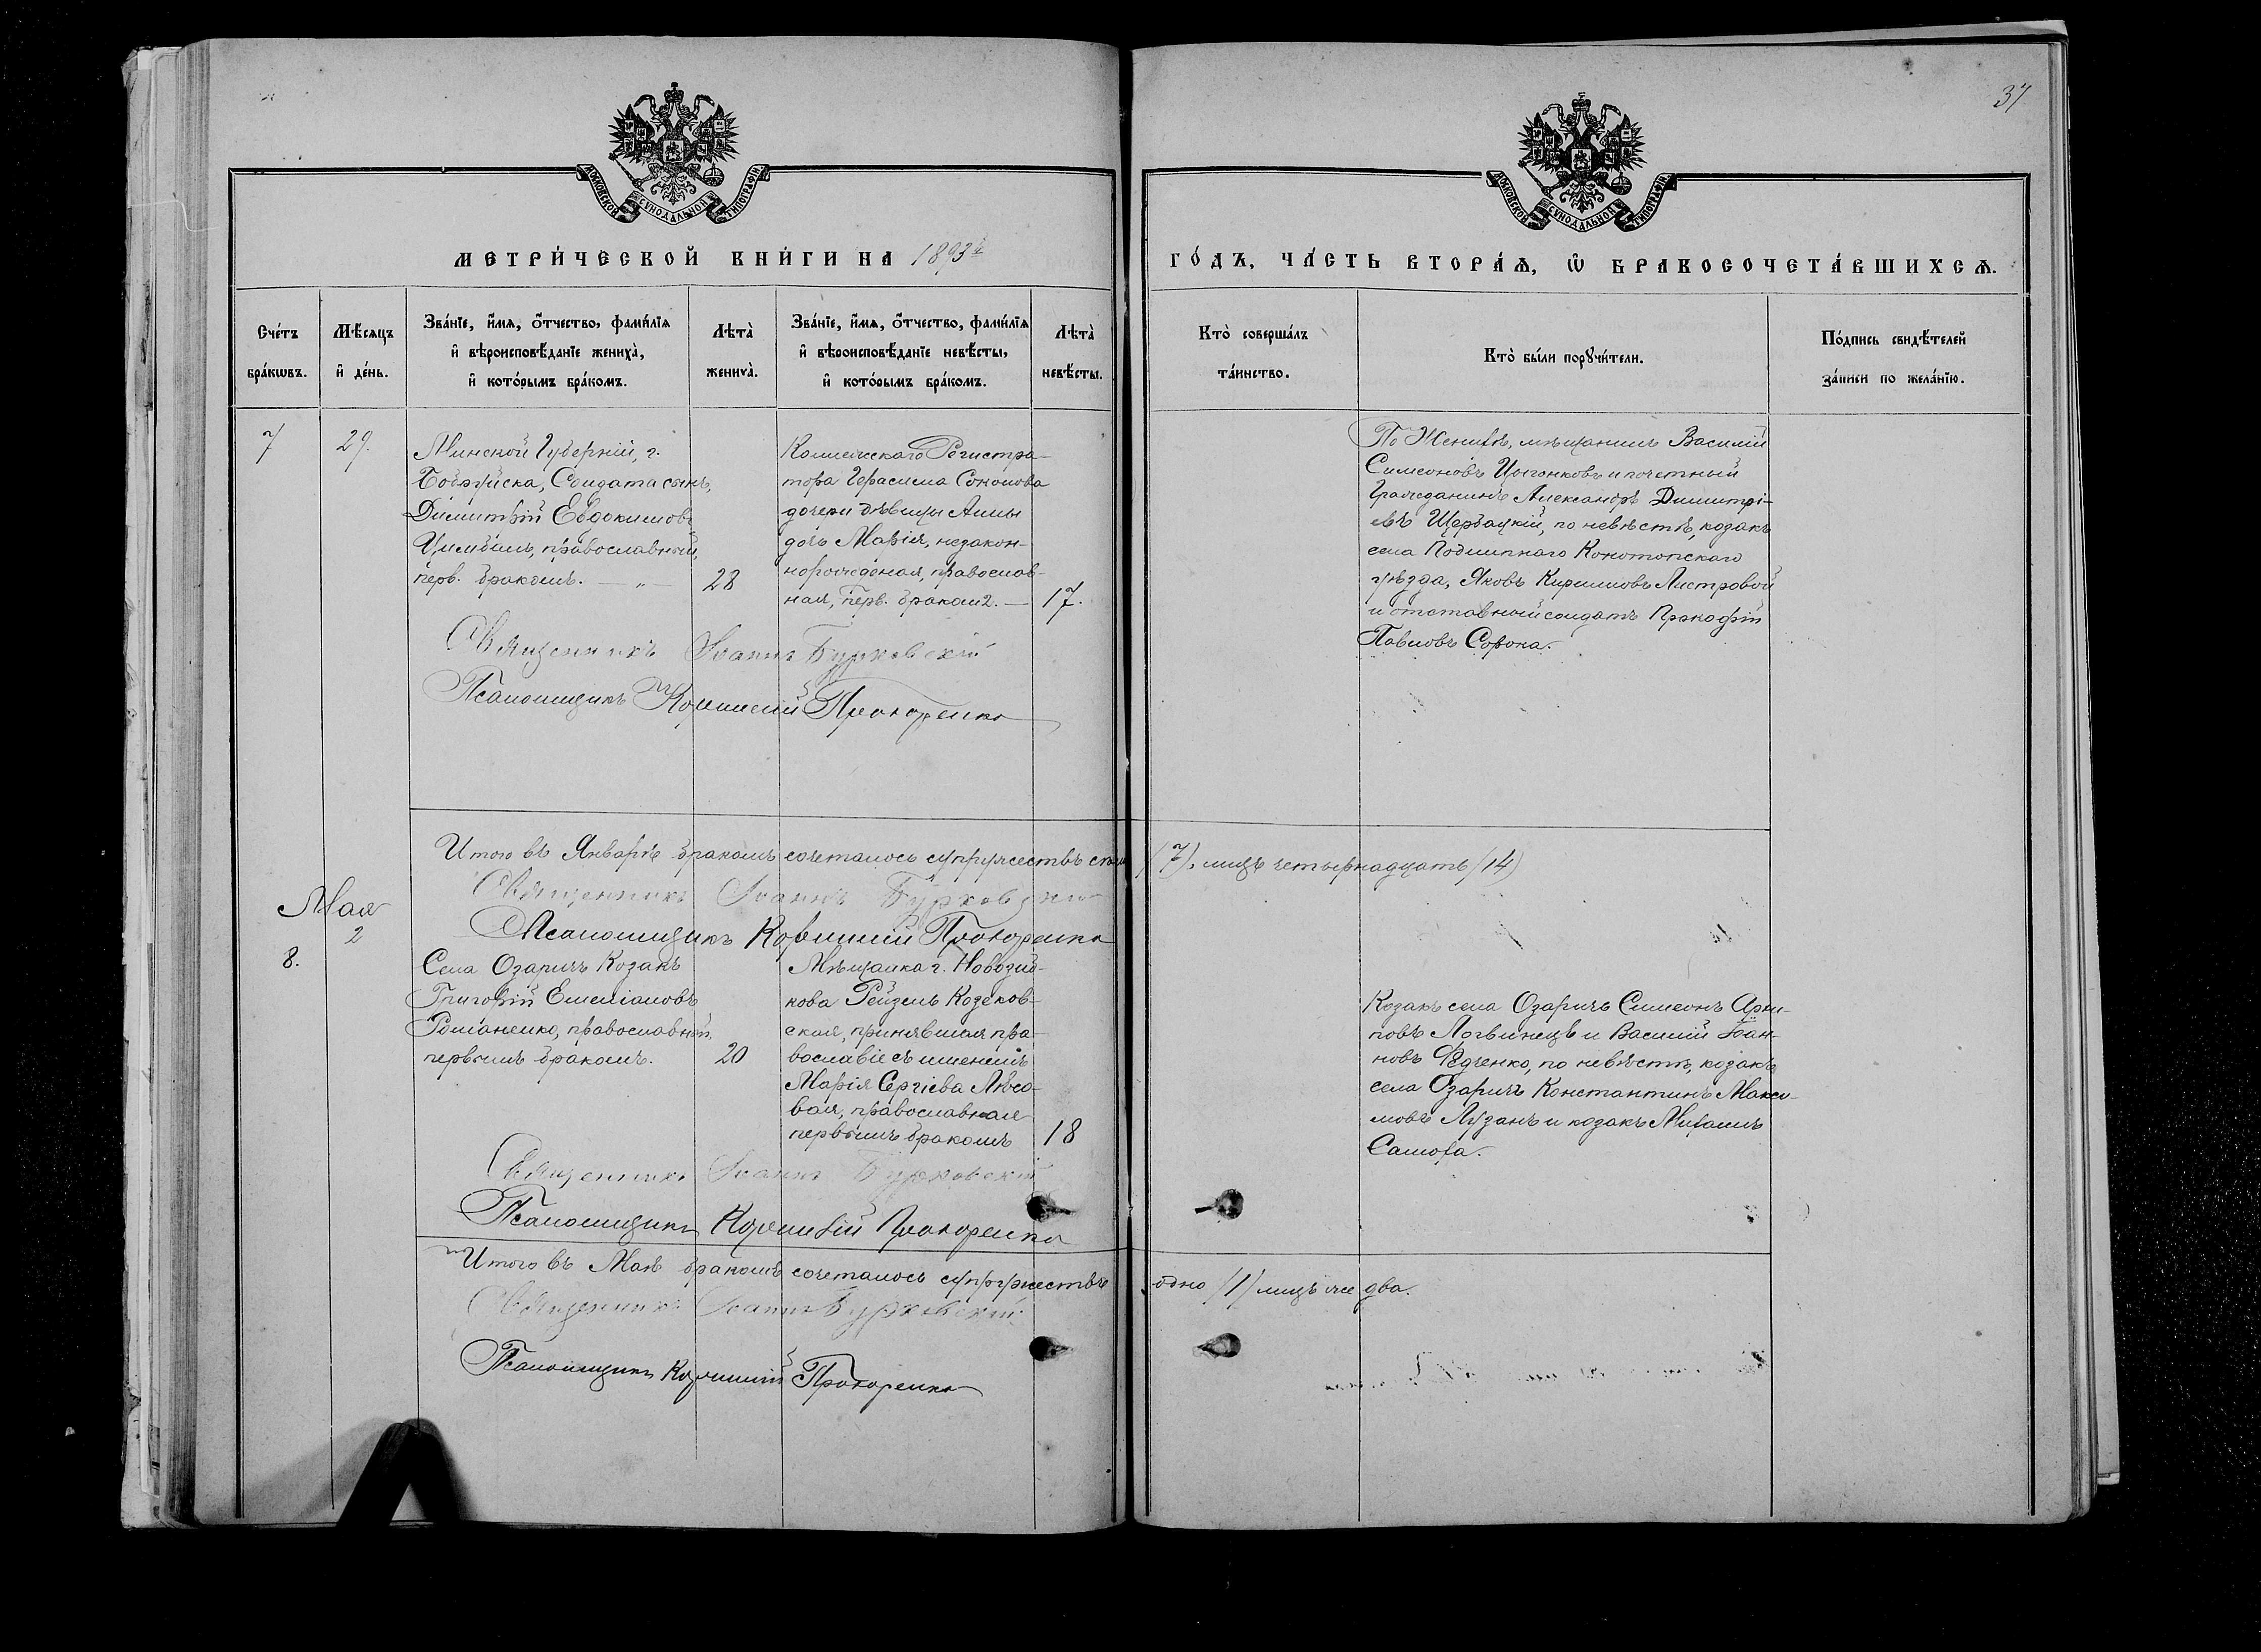 37
МОСКОВСКОЙ СѴНОДАЛЬНОЙ ТИПОГРАФІИ
МОСКОВСКОЙ СѴНОДАЛЬНОЙ ТИПОГРАФІИ
МЕТРИ́ЧЕСКОЙ КНИ́ГИ НА 1893й
ГО́ДЪ, ЧА́СТЬ ВТОРА́Ѧ, Ѽ БРАКОСОЧЕТА́ВШИХСѦ.
Сче́тъ бра́кѡвъ.
Мѣ́сяцъ и҆ де́нь.
Зва́нїе, и҆́мѧ, ѻ҆́тчество, фами́лїѧ
и҆ вѣроисповѣ́данїе жениха̀,
и҆ кото́рымъ бра́комъ.
Лѣта̀ жениха̀.
Зва́нїе, и҆́мѧ, ѻ҆́тчество, фами́лїѧ
и҆ вѣроисповѣ́данїе невѣ́сты,
и҆ кото́рымъ бра́комъ.
Лѣта̀ невѣ́сты.
Кто̀ соверша́лъ та́инство.
Кто̀ бы́ли порꙋчи́тели.
По́дпись свидѣ́телей за́писи по жела́нїю.
7
29.
Минской Губерніи, г.
Бобруйска, Солдата сынъ,
Димитрій Евдокимовъ
Цимбалъ, православный,
перв. бракомъ. — „ —
28
Коллежскаго Регистра-
тора Герасима Соколова
дочери дѣвицы Анны
дочь Марія, незакон-
норожденная, православ-
ная, перв. бракомъ. —
17.
По Женихѣ, мѣщанинъ Василій
Симеоновъ Цыганковъ и почетный
Гражданинъ Александръ Димитрі-
евъ Щербацкій, по невѣстѣ, козакъ
села Подлипнаго Конотопскаго
уѣзда, Яковъ Кирилловъ Листровой
и отставной солдатъ Прокофій
Павловъ Сорока.
Священникъ Іоаннъ Бурковскій
Псаломщикъ Корнилій Прохоренко
Итого въ Январѣ бракомъ сочеталось супружествъ семь (7), лицъ четырнадцать (14)
Священникъ Іоаннъ Бурковскій
Псаломщикъ Корнилій Прохоренко
Мая
2
8.
Села Озаричъ Козакъ
Григорій Емеліановъ
Романенко, православный,
первымъ бракомъ.
20
Мѣщанка г. Новозыб-
кова Рейзель Козеков-
ская, принявшая пра-
вославіе съ именемъ
Марія Сергіева Лѣсо-
вая, православная
первымъ бракомъ
18
Козакъ села Озаричъ Симеонъ Архи-
повъ Логвинецъ и Василій Іоан-
новъ Редченко, по невѣстѣ, козакъ
села Озаричъ Константинъ Макси-
мовъ Лузанъ и козакъ Михаилъ
Самоха.
Священникъ Іоаннъ Бурковскій
Псаломщикъ Корнилій Прохоренко
Итого въ Маѣ бракомъ сочеталось супружество одно (1) лицъ же два.
Священникъ Іоаннъ Бурковскій
Псаломщикъ Корнилій Прохоренко